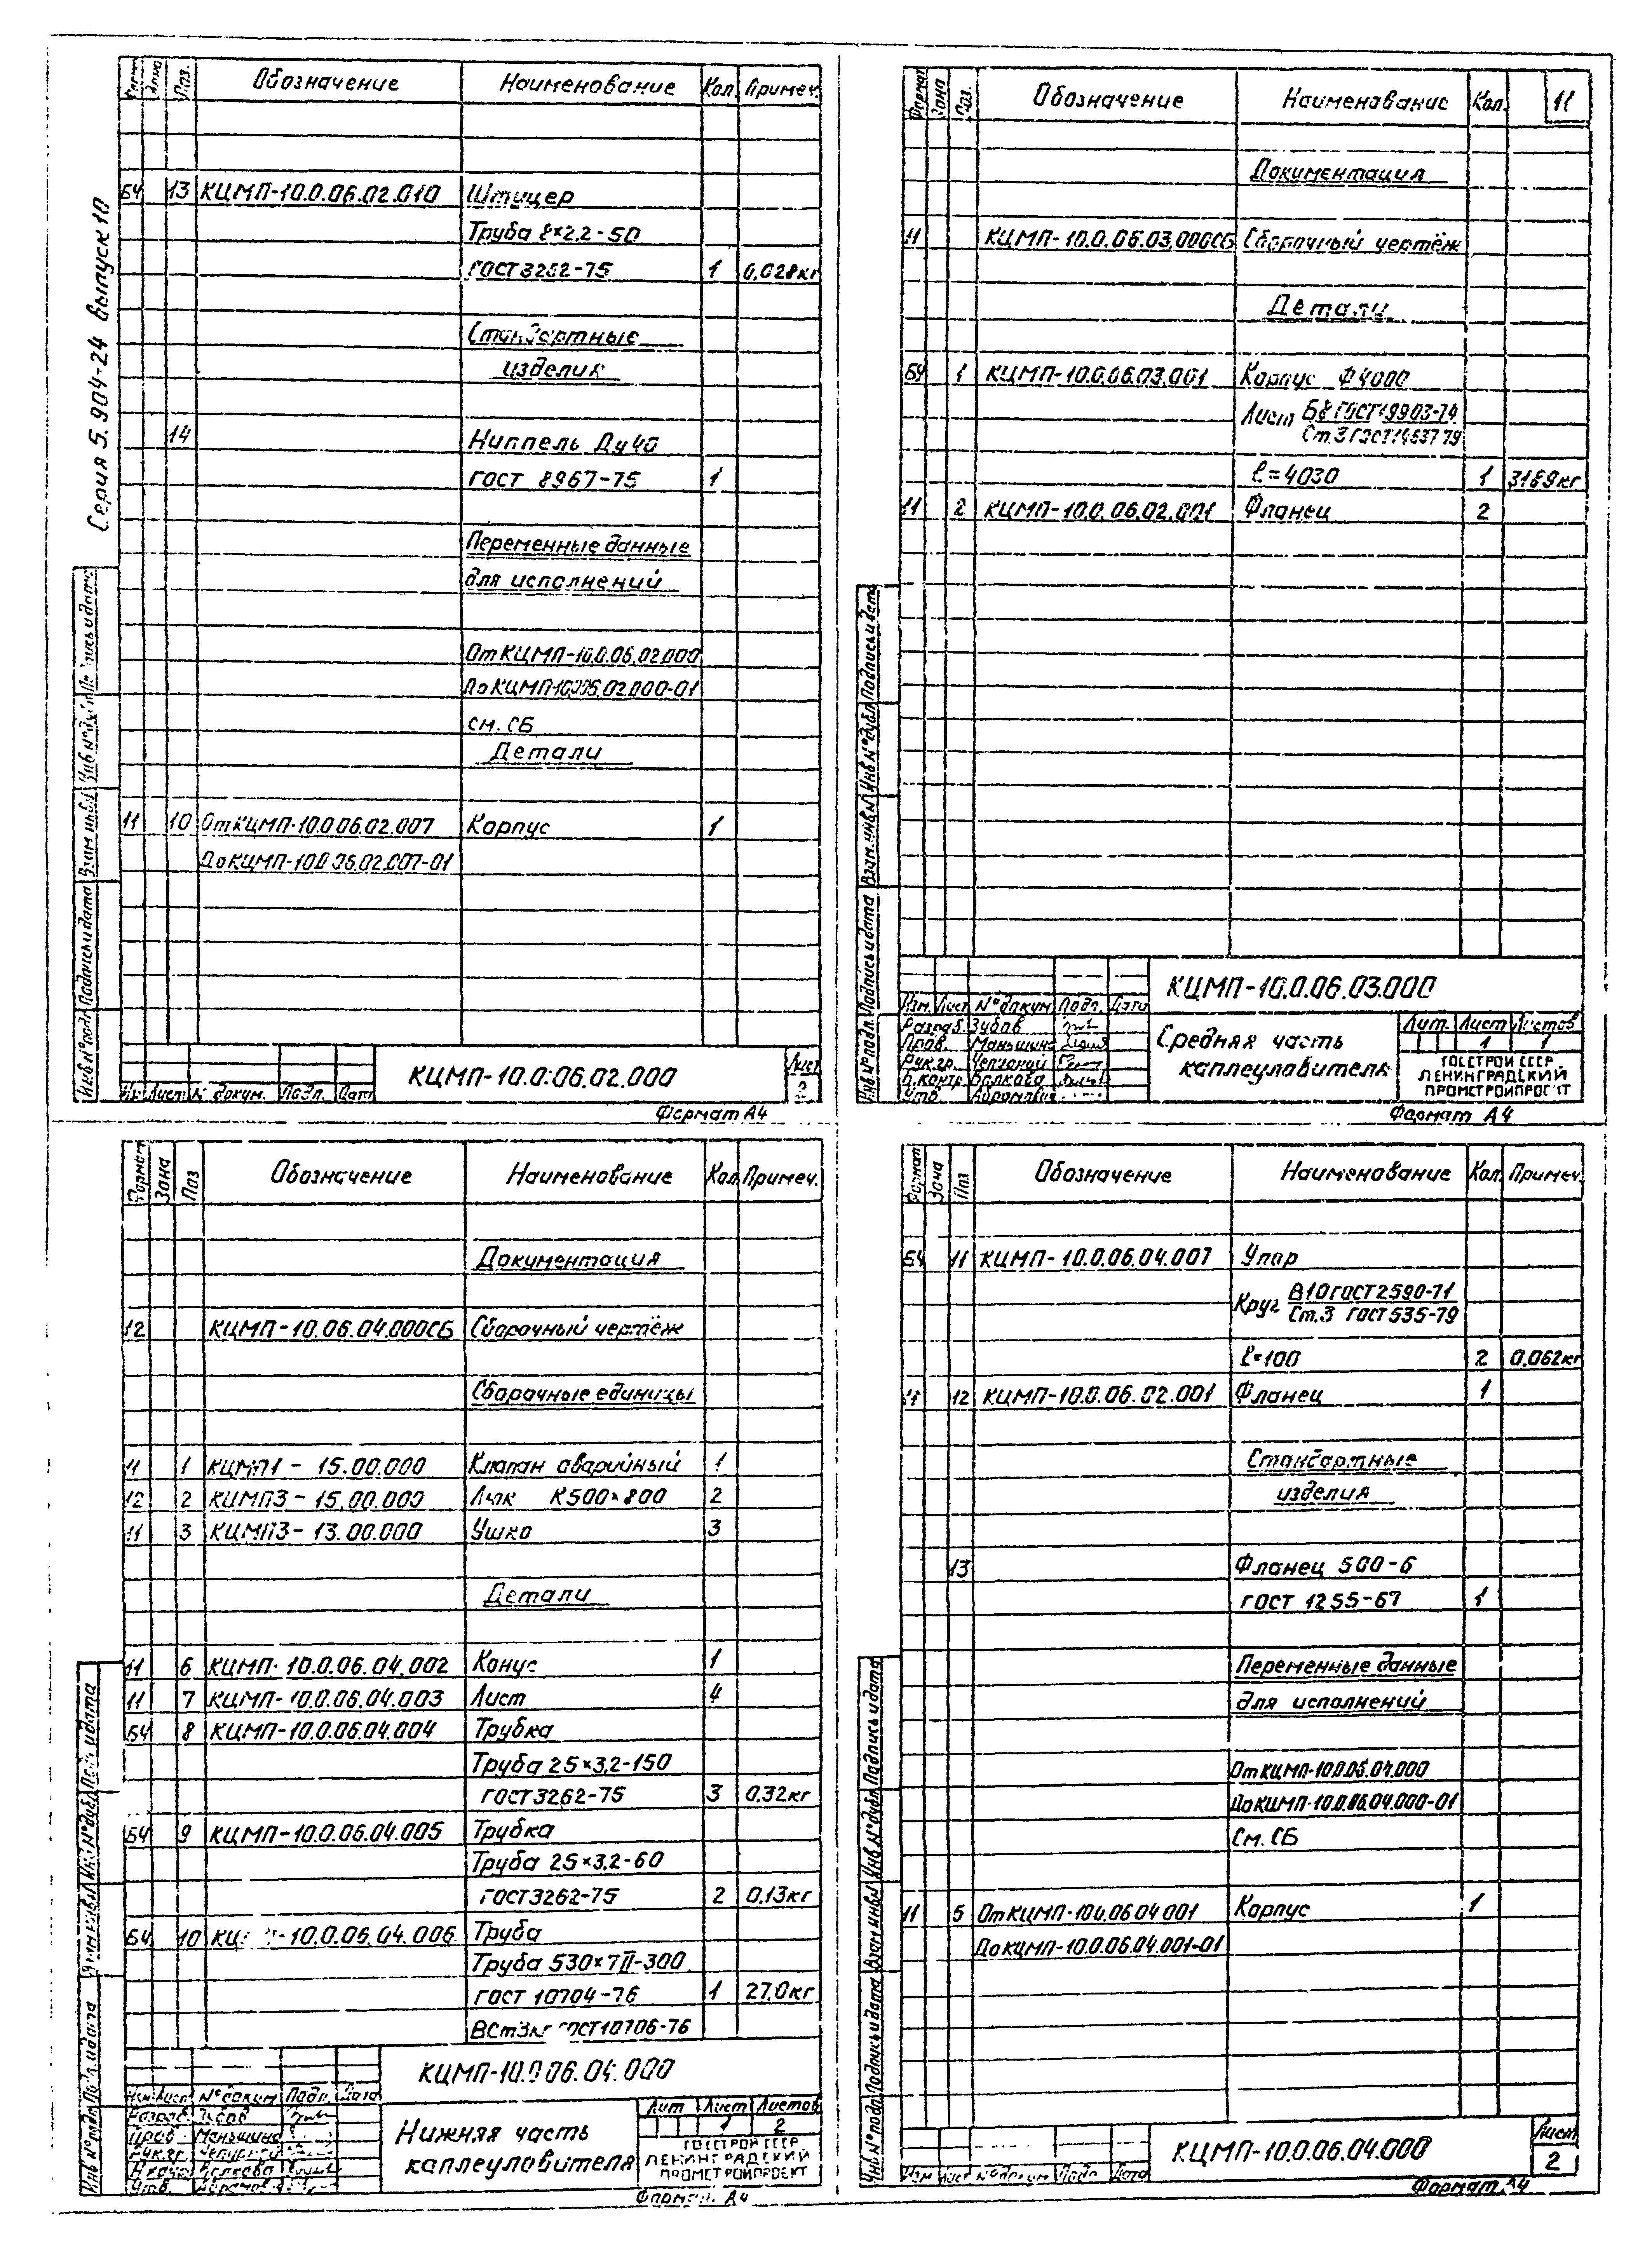 Серия 5.904-24 Выпуск 10
Поз. Обозначение Наименование Кол. Примеч.
БЧ 13 КЦМП-10.0.06.02.010 Штуцер
Труба 8×2,2-50
ГОСТ 3262-75 1 0,028кг
Стандартные
изделия
14 Ниппель Ду40
ГОСТ 8967-75 1
Переменные данные
для исполнений
От КЦМП-10.0.06.02.000
До КЦМП-10.0.06.02.000-01
см. СБ
Детали
11 10 От КЦМП-10.0.06.02.007 Корпус 1
До КЦМП-10.0.06.02.007-01
Инв.№подл. Подпись и дата Взам.инв.№ Инв.№дубл. Подпись и дата
Лист № докум. Подп. Дата
КЦМП-10.0.06.02.000
Лист
2
Формат А4
Формат Зона Поз. Обозначение Наименование Кол. 11
Документация
11 КЦМП-10.0.06.03.000СБ Сборочный чертёж
Детали
БЧ 1 КЦМП-10.0.06.03.001 Корпус Ф4000
Лист Б8 ГОСТ 19903-74
Ст.3 ГОСТ 14637-79
ℓ=4030 1 3169кг
11 2 КЦМП-10.0.06.02.001 Фланец 2
Инв.№подл. Подпись и дата Взам.инв.№ Инв.№дубл. Подпись и дата
КЦМП-10.0.06.03.000
Изм. Лист № докум. Подп. Дата
Разраб. Зубов
Пров. Маньшина
Рук.гр.
Н.контр. Волкова
Утв.
Средняя часть
каплеуловителя
Лит. Лист Листов
1 1
ГОССТРОЙ СССР
ЛЕНИНГРАДСКИЙ
ПРОМСТРОЙПРОЕКТ
Формат А4
Формат Зона Поз Обозначение Наименование Кол. Примеч.
Документация
12 КЦМП-10.06.04.000СБ Сборочный чертёж
Сборочные единицы
11 1 КЦМП1-15.00.000 Клапан аварийный 1
12 2 КЦМП3-15.00.000 Люк К500×800 2
11 3 КЦМП3-13.00.000 Ушко 3
Детали
11 6 КЦМП-10.0.06.04.002 Конус 1
11 7 КЦМП-10.0.06.04.003 Лист 4
БЧ 8 КЦМП-10.0.06.04.004 Трубка
Труба 25×3,2-150
ГОСТ 3262-75 3 0,32кг
БЧ 9 КЦМП-10.0.06.04.005 Трубка
Труба 25×3,2-60
ГОСТ 3262-75 2 0,13кг
БЧ 10 КЦМП-10.0.06.04.006 Труба
Труба 530×7П-300
ГОСТ 10704-76 1 27,0кг
ВСт3кп ГОСТ 10706-76
КЦМП-10.0.06.04.000
Изм. Лист № докум. Подп. Дата
Разраб. Зубов
Пров. Маньшина
Рук.гр.
Н.контр. Волкова
Утв.
Нижняя часть
каплеуловителя
Лит Лист Листов
1 2
ГОССТРОЙ СССР
ЛЕНИНГРАДСКИЙ
ПРОМСТРОЙПРОЕКТ
Формат А4
Формат Зона Поз Обозначение Наименование Кол. Примеч.
БЧ 11 КЦМП-10.0.06.04.007 Упор
Круг В10 ГОСТ 2590-71
Ст.3 ГОСТ 535-79
ℓ=100 2 0,062кг
11 12 КЦМП-10.0.06.02.001 Фланец 1
Стандартные
изделия
13 Фланец 500-6
ГОСТ 1255-67 1
Переменные данные
для исполнений
От КЦМП-10.0.06.04.000
До КЦМП-10.0.06.04.000-01
См. СБ
11 5 От КЦМП-10.0.06.04.001 Корпус 1
До КЦМП-10.0.06.04.001-01
Инв.№подл. Подпись и дата Взам.инв.№ Инв.№дубл. Подпись и дата
Изм Лист № докум Подп Дата
КЦМП-10.0.06.04.000
Лист
2
Формат А4